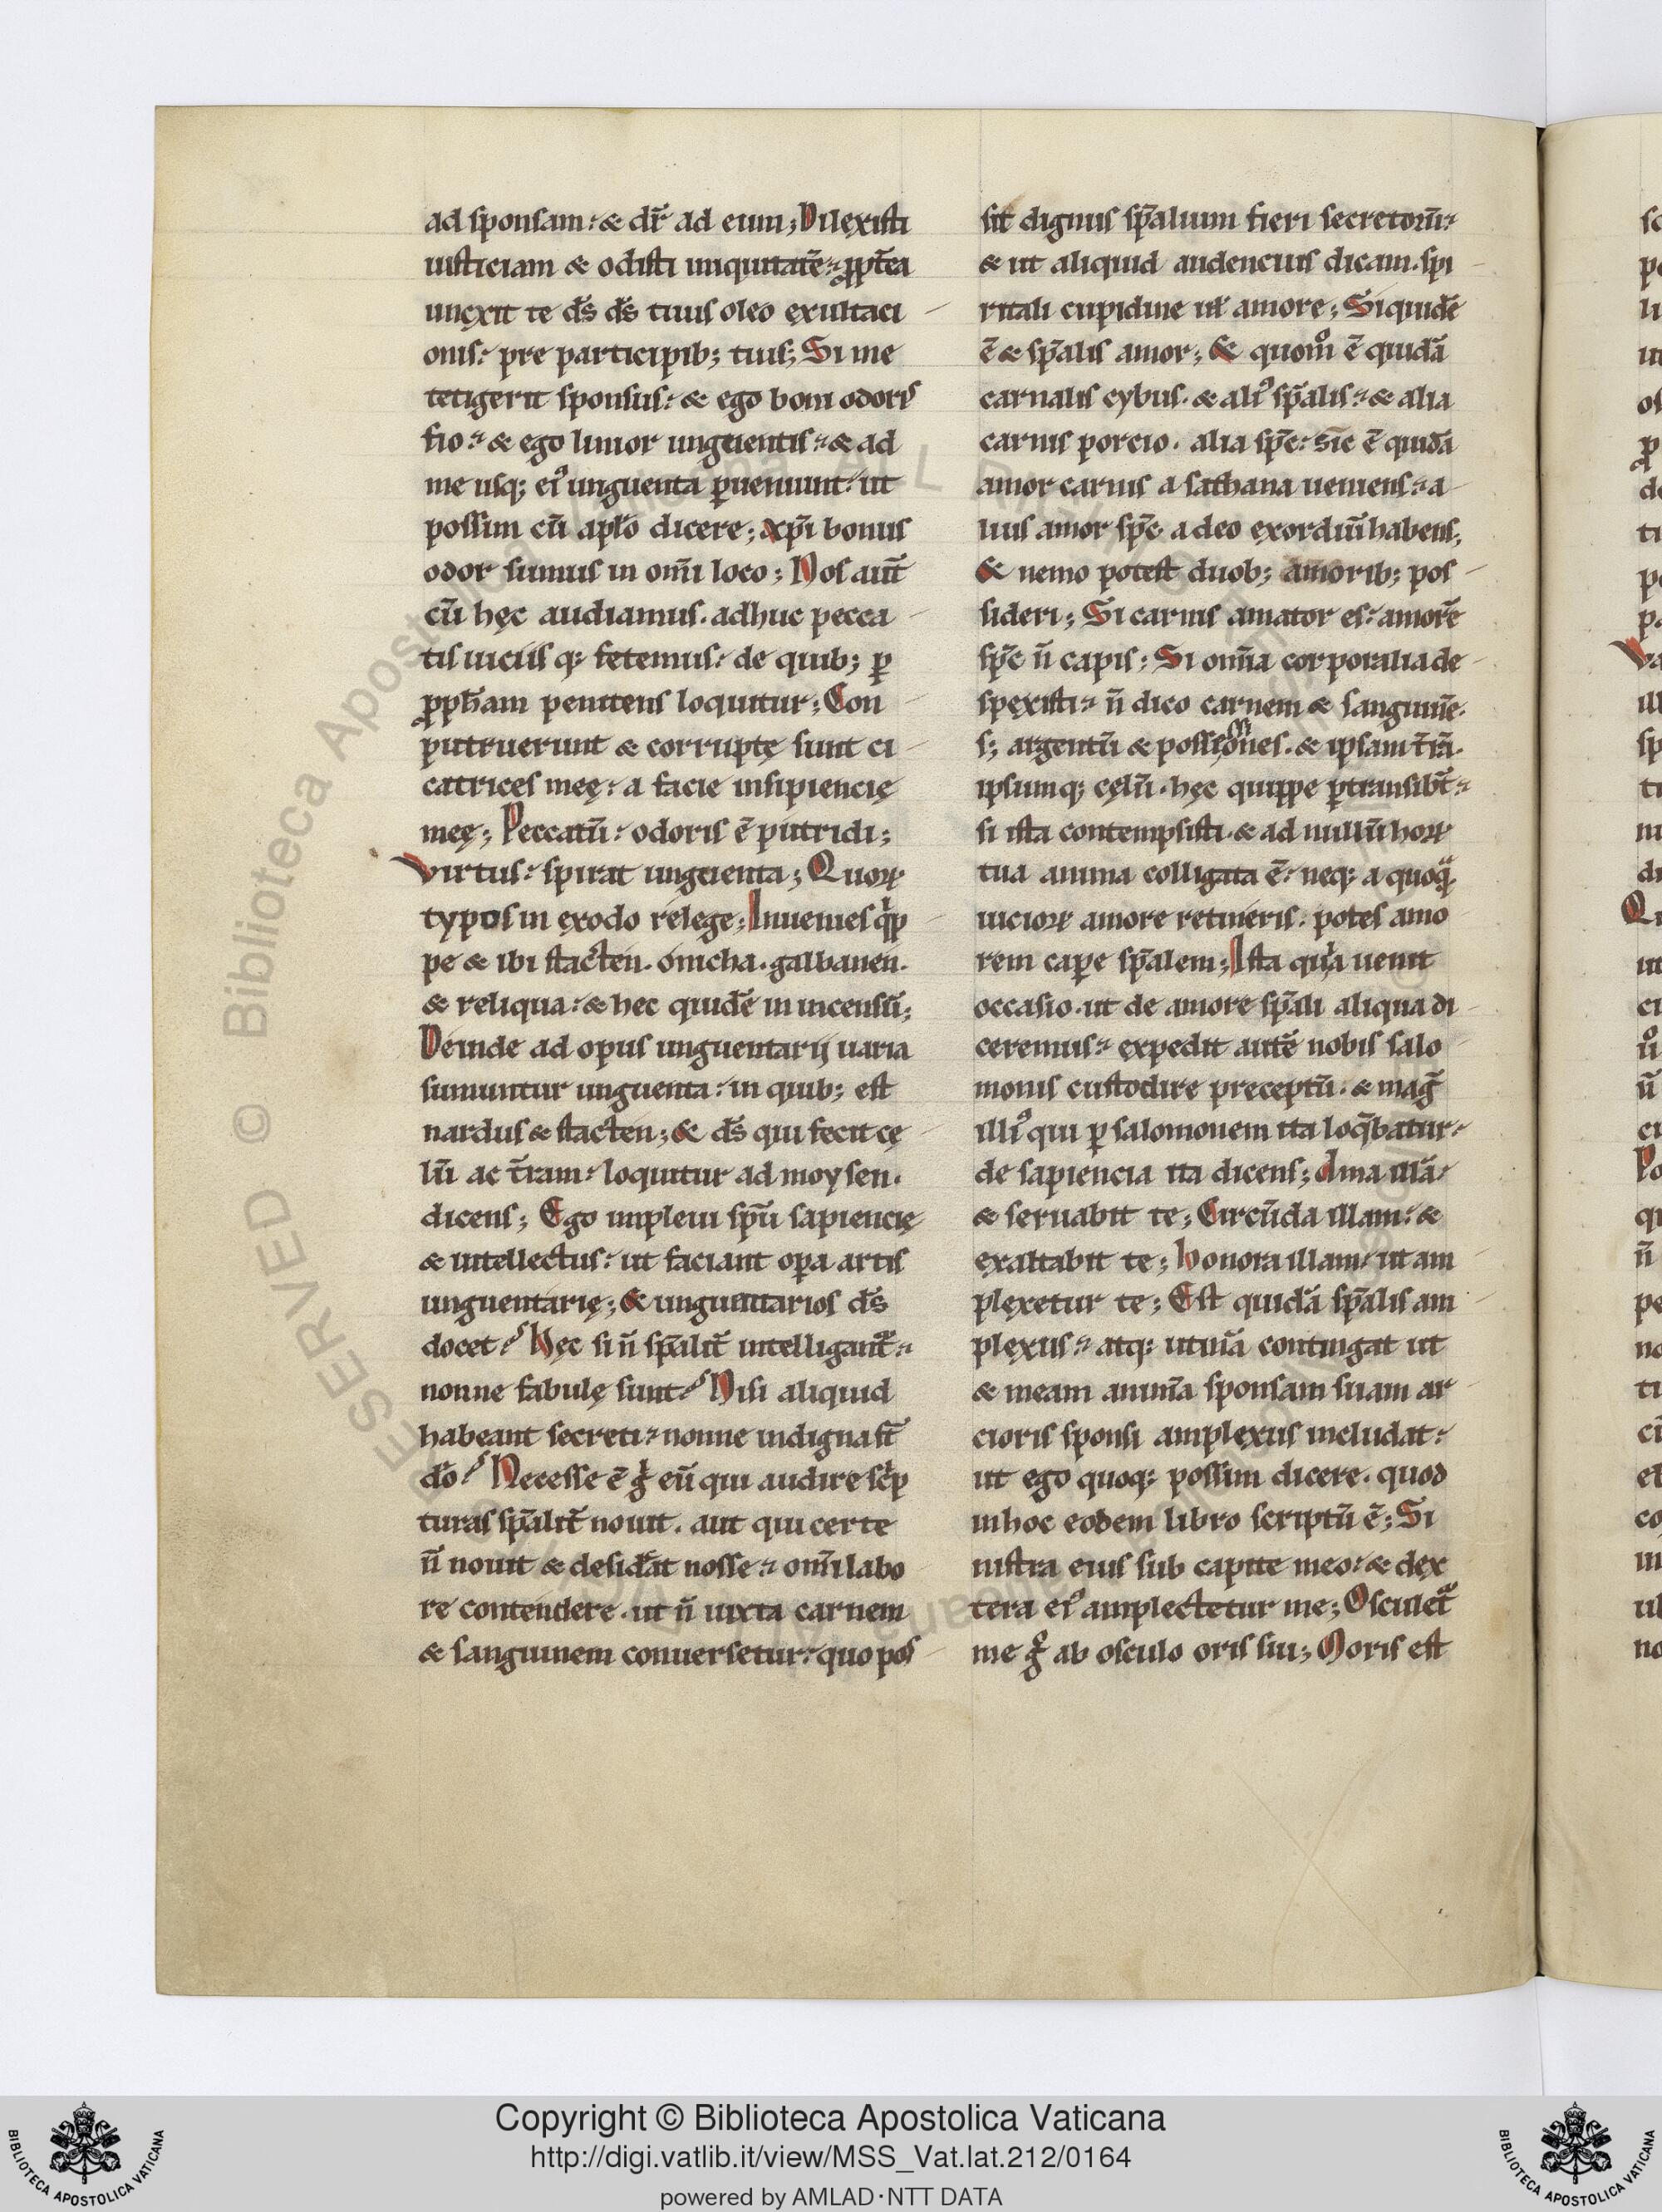 ad sponsam: & dr̄ ad eum; Dilexisti
iusticiam & odisti iniquitatē: ꝓpt̄ea
unxit te d̄s d̄s tuus oleo exultaci
onis: pre participib; tuis; Si me
tetigerit sponsus: & ego boni odoris
fio: & ego linior unguentis: & ad
me usq; eiꝰ unguenta ꝑueniunt: ut
possim cū aplo dicere; xp̄i bonus
odor sumus in om̄i loco; Nos aut̄
cū hęc audiamus. adhuc pecca
tis uiciis q; fetemus: de quib; ꝑ
ꝓph̄am penitens loquitur; Con
putruerunt & corruptę sunt ci
catrices meę: a facie insipiencię
meę; Peccatū: odoris ē putridi;
Virtus: spirat unguenta; Quoꝝ
typos in exodo relege; Inuenies qͥp
pe & ibi stacten. onicha. galbanen.
& reliqua: & hec quidē in incensū;
Deinde ad opus unguentarij uaria
sumuntur unguenta: in quib; est
nardus & stacten; & d̄s qui fecit cę
lū ac t̄ram: loquitur ad moysen.
dicens; Ego impleui sp̄u sapiencię
& intellectus: ut faciant oꝑa artis
unguentarię; & unguentarios d̄s
docet? Hęc si n̄ sp̄alit̄ intelligant̄:
nonne fabulę sunt? Nisi aliquid
habeant secreti: nonne indigna st̄
do? Necesse ē gͥ eū qui audire scͥp
turas sp̄alit̄ nouit. aut qui certe
n̄ nouit & desid̄at nosse: om̄i labo
re contendere. ut n̄ iuxta carnem
& sanguinem conuersetur: quo pos
sit dignus sp̄alium fieri secretorū:
& ut aliquid audencius dicam. spi
ritali cupidine ul̄ amore; Siquidē
ē & sp̄alis amor; & quomͦ ē quidā
carnalis cybus. & aliꝰ sp̄alis: & alia
carnis porcio. alia sp̄c: sic ē quidā
amor carnis a sathana ueniens: a
lius amor sp̄c a deo exordiū habens;
& nemo potest duob; amorib; pos
sideri; Si carnis amator es: amorē
sp̄c n̄ capis; Si om̄ia corporalia de
spexisti: n̄ dico carnem & sanguinē.
s; argentū & possessiones. & ipsam t̄rā.
ipsumq; cęlū. hęc quippe ꝑtransibt̄:
si ista contempsisti. & ad nullū hoꝝ
tua anima colligata ē: neq; a quoqͣ
uicioꝝ amore retineris: potes amo
rem caꝑe sp̄alem; Ista quia uenit
occasio. ut de amore sp̄ali aliqua di
ceremus: expedit autē nobis salo
monis custodire preceptū: & mag̃
illiꝰ qui ꝑ salomonem ita loq̄batur:
de sapiencia ita dicens; Ama illā:
& seruabit te; Circūda illam: &
exaltabit te; Honora illam: ut am
plexetur te; Est quidā sp̄alis am
plexus: atq; utinā contingat ut
& meam animā sponsam suam ar
cioris sponsi amplexus includat:
ut ego quoq; possim dicere. quod
inhoc eodem libro scriptū ē; Si
nistra eius sub capite meo: & dex
tera eiꝰ amplectetur me; Osculetͣ
me gͦ ab osculo oris sui; Moris est
Copyright © Biblioteca Apostolica Vaticana
http://digi.vatlib.it/view/MSS_Vat.lat.212/0164
powered by AMLAD·NTT DATA
BIBLIOTECA APOSTOLICA VATICANA
BIBLIOTECA APOSTOLICA VATICANA